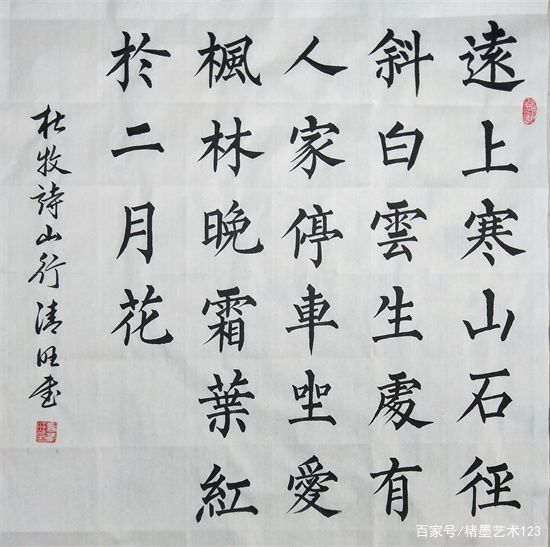 遠上寒山石徑
斜白雲生處有
人家停車坐愛
楓林晚霜葉紅
於二月花
杜牧詩山行清旺書
百家号/楮墨艺术123